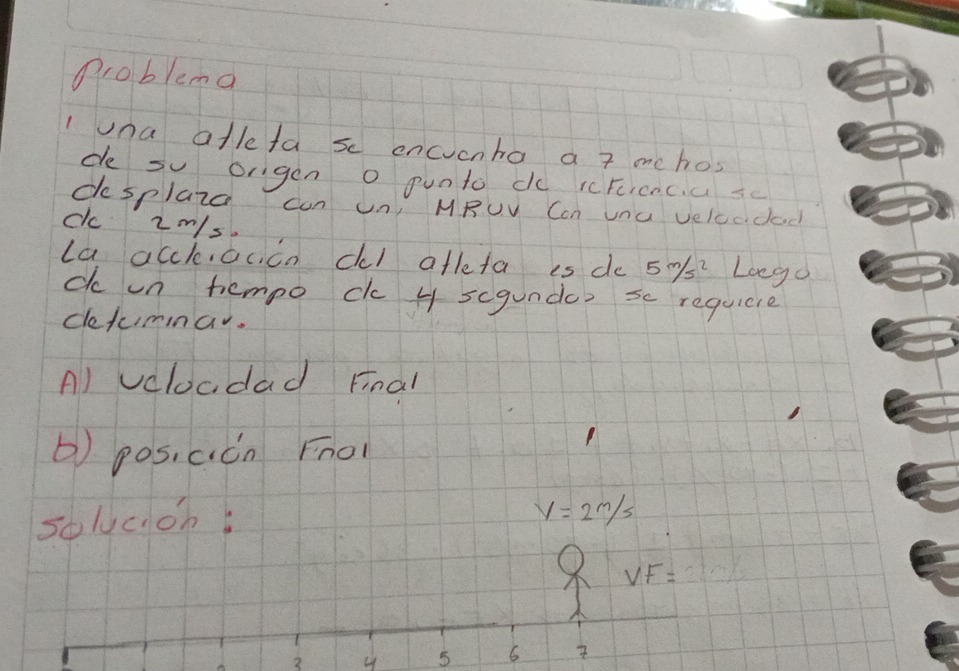 problema
1 una atleta se encuentra a 7 metros
de su origen o punto de referencia se
desplaza con un, MRUV con una velocidad
de 2 m/s.
La aceleración del atleta es de 5 m/s² Luego
de un tiempo de 4 segundos se requiere
determinar.
A) velocidad Final
b) posición Fnal
solución :
V = 2 m/s
VF =
3 4 5 6 7